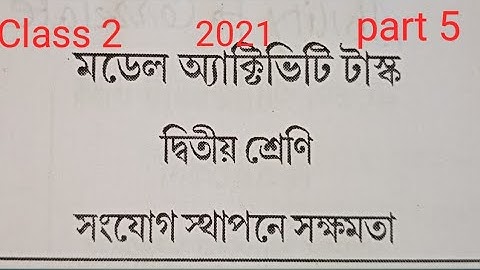 Class 2 2021 part 5
মডেল অ্যাক্টিভিটি টাস্ক
দ্বিতীয় শ্রেণি
সংযোগ স্থাপনে সক্ষমতা